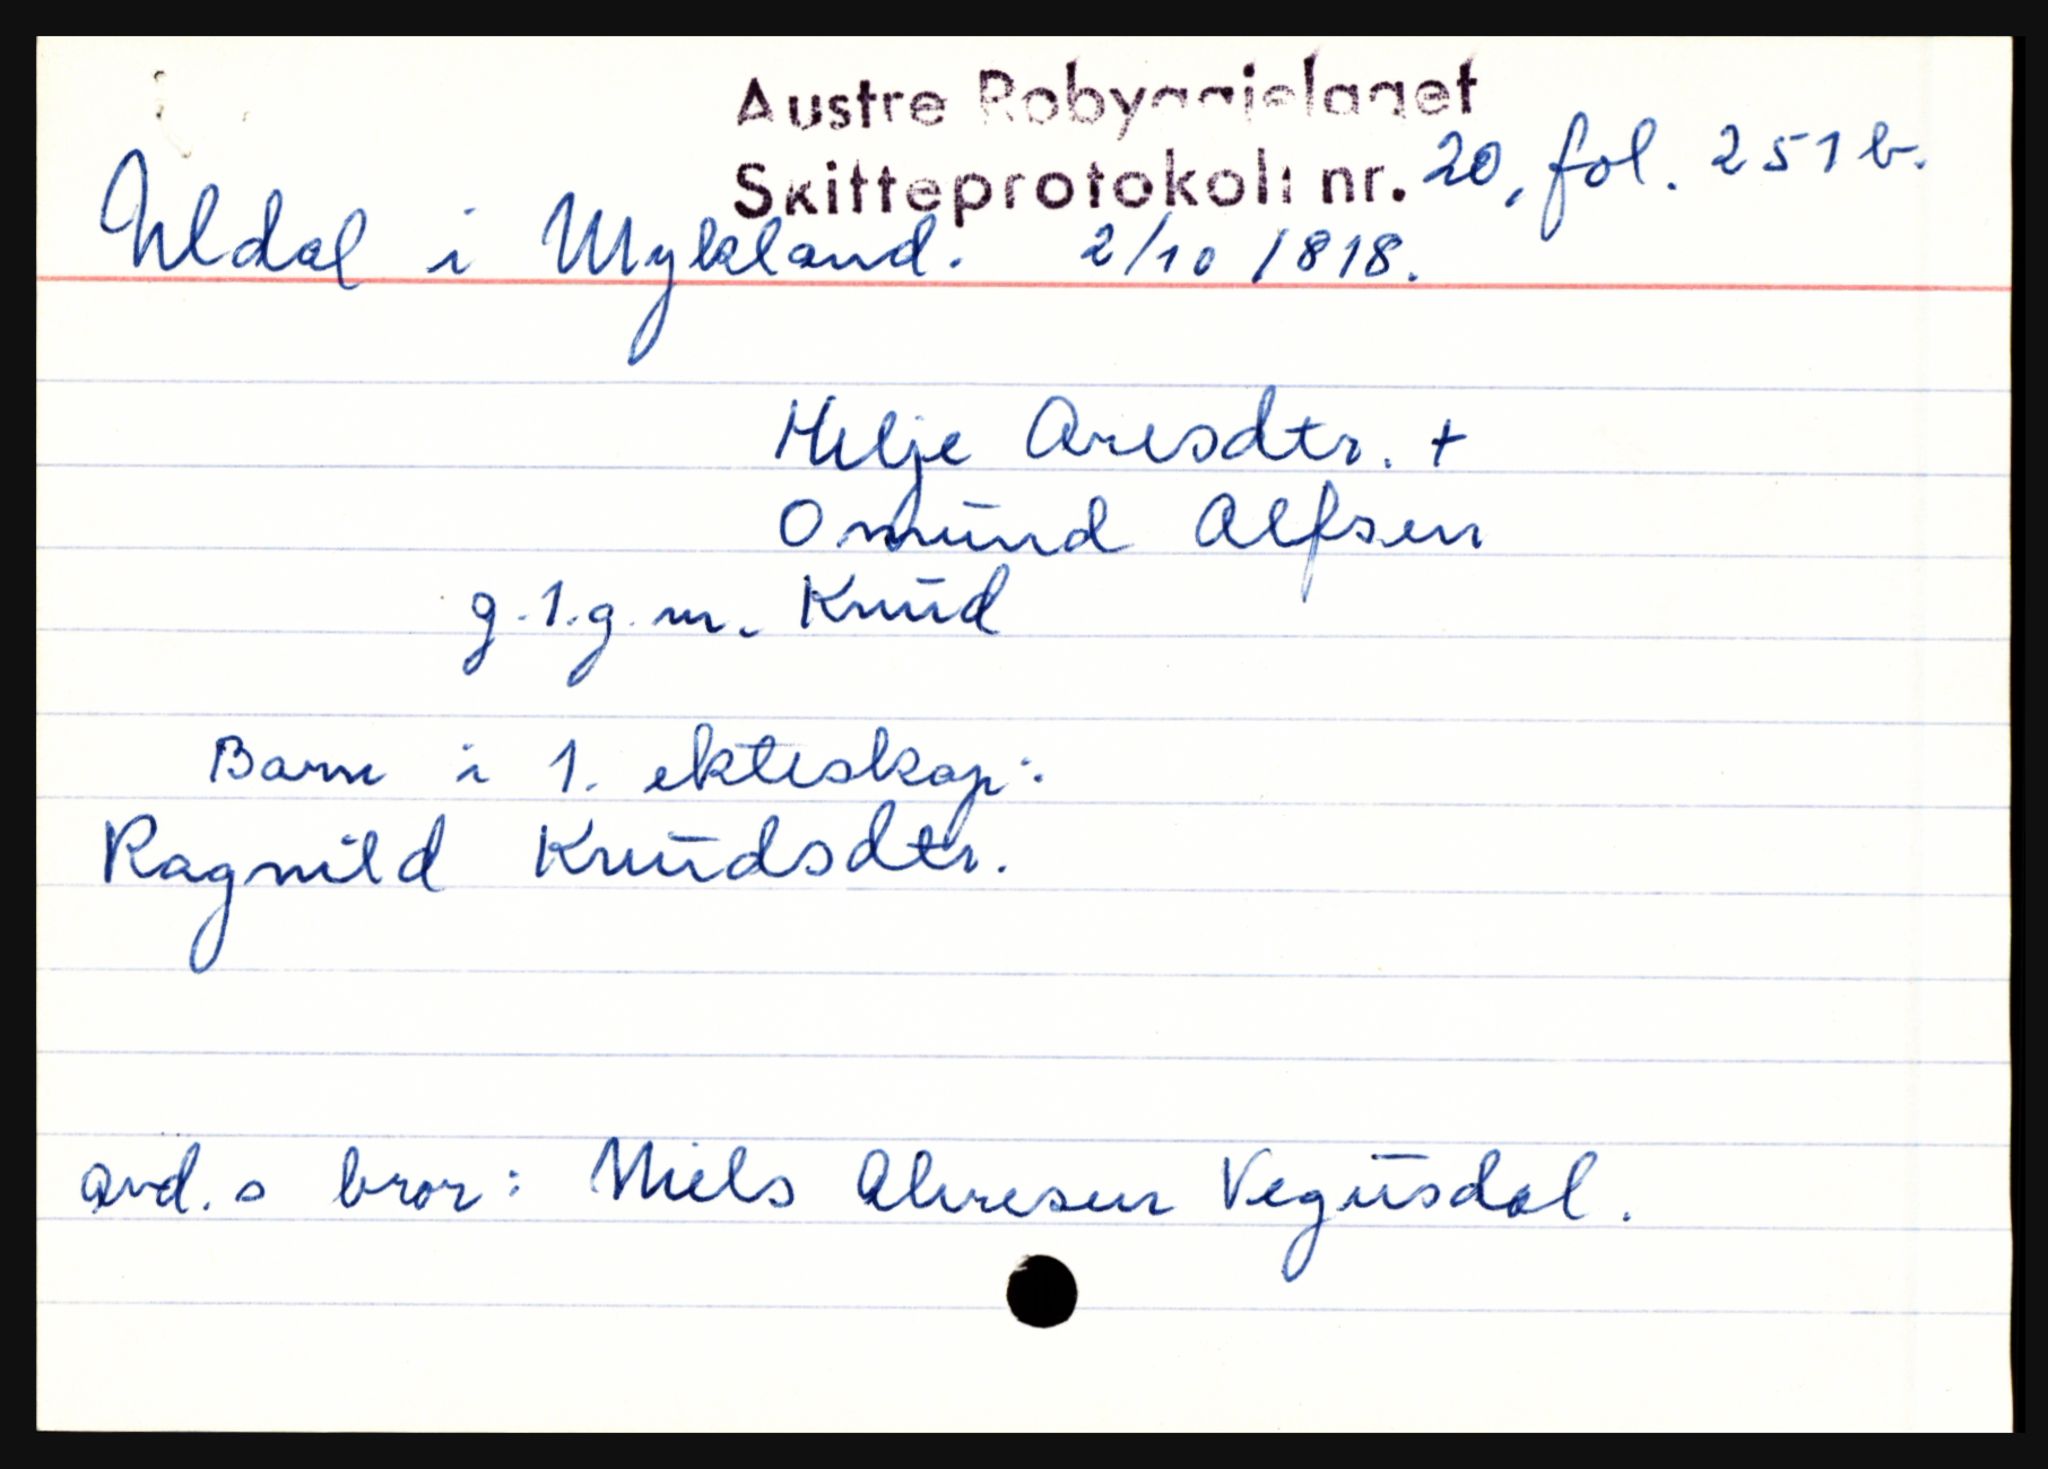 Austre Robyggjelaget
Skifteprotokoll nr. 20, fol. 251 b.
Uldal i Mykland. 2/10 1818.
Helje Aresdtr. +
Omund Alfsen
g. 1. g. m. Knud
Barn i 1. ekteskap:
Ragnild Knudsdtr.
avd. s bror: Niels Ahresen Vegusdal.